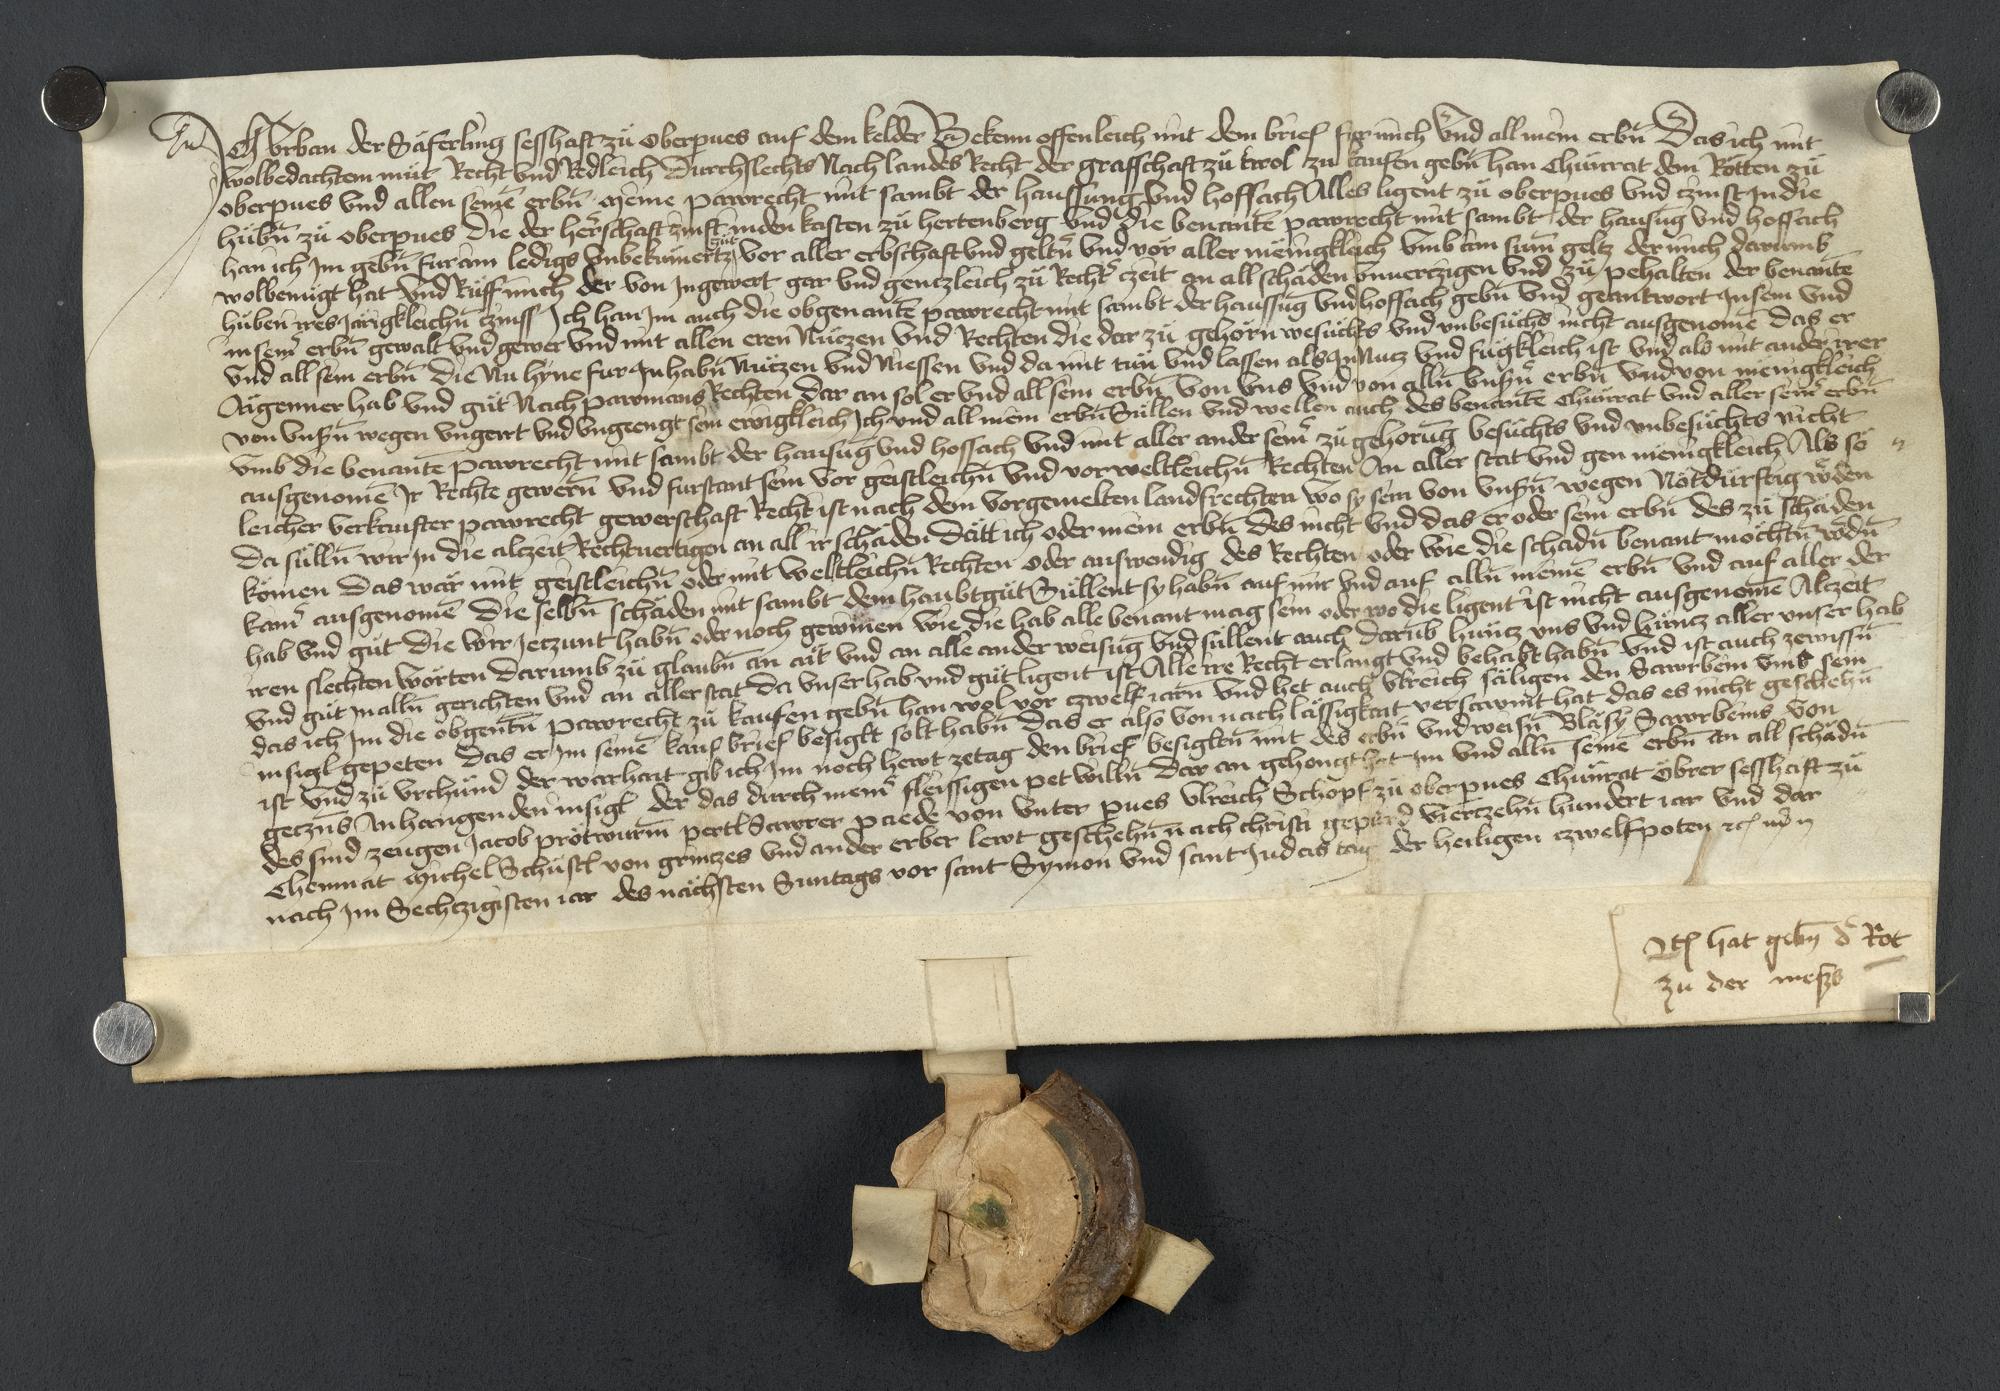 Ich Vrban der Säferling sesshaft zů Oberpues auf dem kelder Bekenn offenleich mit dem brief fur mich Vnd all mein erbn̄ Das ich mit
wolbedachtem můt Recht vnd Redleich Durchslechts Nach landes Recht der grafschaft zů tirol zu kaufen gebn̄ han Chůnrat dem Rötten zů
oberpues vnd allen seinē erbn̄ meine pawrecht mit sambt der haussung vnd hoffach Alles ligent zů oberpues vnd czinst In die
hůbn̄ zů oberpues Die der herschaft zinst in den kasten zů hertenberg vnd die benantē pawrecht mit sambt der hausūg vnd hoffach
han ich Im gebn̄ fur ain ledigs vnbekumertz gůt vor aller erbschaft vnd geltn̄ vnd vor aller mēnigkleich vmb ain sūm geltz der mich darumb
wolbenugt hat vnd Růff mich der von In gewert gar vnd genczleich zů Rechtr̄ czeit an all schäden Inuerczigen vnd zů pehalten der benantē
hůben irs Järigkleichn̄ czinss Ich han Im auch die obgenantē pawrecht mit sambt der haussūg vnd hoffach gebn̄ vnd geantwort In sein vnd
in seinr̄ erbn̄ gewalt vnd gewer vnd mit allen eren Nuczen vnd Rechten die dar zů gehörn besůchts vnd vnbesůchs nicht ausgenomē das er
vnd all sein erbn̄ die Nu hyne fur Inhabn̄ Nuczen vnd Niessen vnd da mit tůn vnd lassen als In Nucz vnd fůgkleich ist vnd als mit ander irer
Aigenner hab vnd gůt Nach pawmans Rechten dar an sol er vnd all sein erbn̄ von vns vnd von alln̄ vnsrn̄ erbn̄ vnd von mēnigkleich
von vnsrn̄ wegen vngeirt vnd vngeengt sein ewigkleich Ich vnd all mein erbn̄ Sullen vnd wellen auch des benantē Chůnrat vnd aller seinr̄ erbn̄
vmb die benantē pawrecht mit sambt der hausūg vnd hoffach vnd mit aller ander seinr̄ zů gehorūg besůchts vnd vnbesůchts nicht
ausgenomē Ir Rechte gewern̄ vnd furstant sein vor geistleichn̄ vnd vor weltleichn̄ Rechten An aller stat vnd gen mēnigkleich Als sö
leicher verkaufter pawrecht gewerschaft Recht ist nach dem vorgemelten landsrechten wo sy sein von vnsrn̄ wegen Nötdůrftig wr̄den
da sůlln̄ wir In die alczeit Rechtuertigen an all ir schäden Dätt ich oder mein erbn̄ des nicht vnd das er oder sein erbn̄ des zů schäden
kömen Das wär mit geistleichn̄ oder mit weltleichn̄ Rechten oder auswendig des Rechten oder wie die schadn̄ benant möchtn̄ wr̄dn̄
kainr̄ ausgenomē Die selbn̄ schäden mit sambt dem haubtgůt Sůllent sy habn̄ auf mir vnd auf alln̄ meinē erbn̄ vnd auf aller der
hab vnd gůt die wir Ieczunt habn̄ oder noch gewinen wie die hab alle benant mag sein oder wo die ligent ist nicht ausgenomē Alczeit
iren slechten wörten darumb zů glaubn̄ an aid vnd an alle ander weisūg vnd sullent auch darūb hůncz vns vnd hůncz aller vnser hab
vnd gůt In alln̄ gerichten vnd an aller stat da vnser hab vnd gůt ligent ist Alle irre Recht erlangt vnd behabt habn̄ vnd ist auch zewissn̄
das ich Im die obgentn̄ pawrecht zů kaufen gebn̄ han wol vor czwelf iarn̄ vnd het auch vlreich säligen den Sawrbein vmb sein
insigl gepeten das er Im seinē kauf brief besiglt solt habn̄ das er also von nach lässigkait versawmt hat das es nicht geschehn̄
ist vnd zů vrchůnd der warhait gib ich Im noch hewt zetag den brief besigltn̄ mit des erbn̄ vnd weisn̄ Bläsy Sawrbeins von
geczns̄ Anhangenden insigl der das durch meinr̄ fleissigen pet willn̄ dar an gehengt hat im vnd alln̄ seinē erbn̄ an all schädn̄
des sind zeugen Jacob prötwurm pertl Sawrer paede von vnter pues vlreich Schöpf zů oberpues Chůnrat Öbrer sesshaft zů
Chemnat Michel Schůstl von grinczes vnd ander erber lewt geschehn̄ nach christi gepůrd vierczehn̄ hundert iar vnd dar
nach Im Sechtzigisten iar des nächsten Suntags vor sant Symon vnd sant Judas tag der heiligen czwelfpoten
Itē hat gebn̄ d' Rot
zu der mess